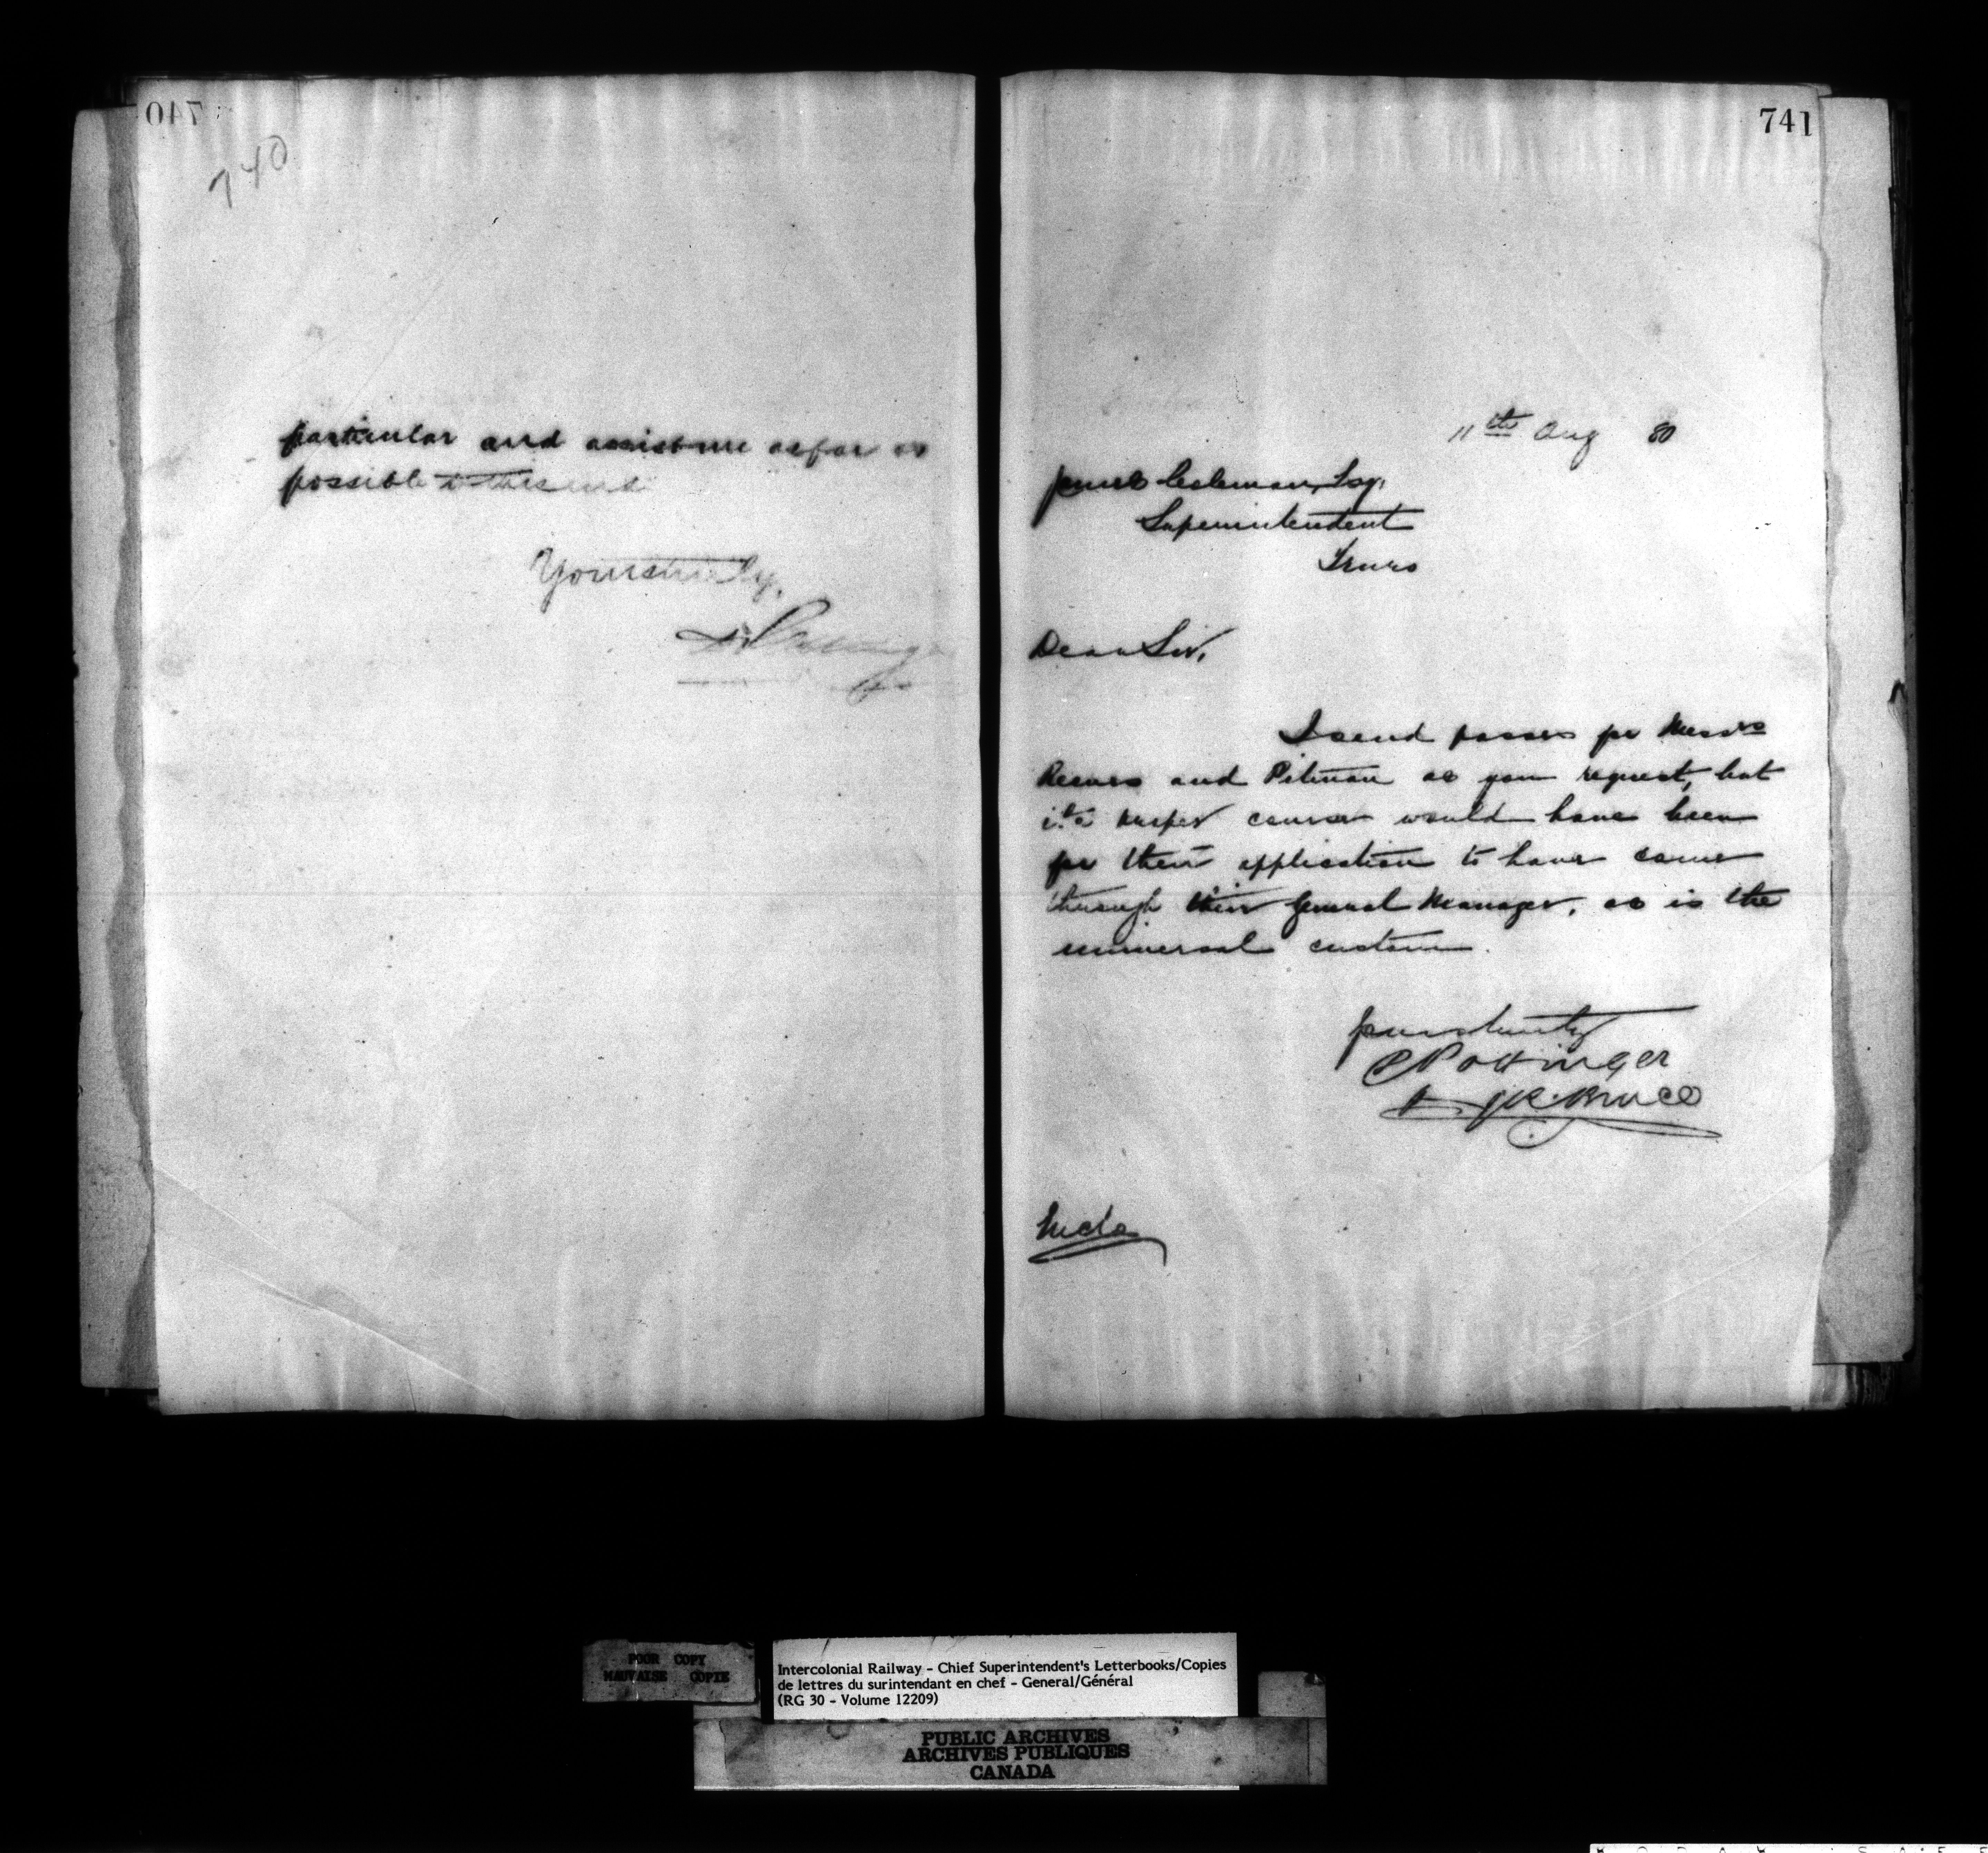 740
740
particular and assist me as far as
possible to this end
Yours truly,
D Pottinger
741
11th Aug 80
James Coleman, Esq.
Superintendent
Truro
Dear Sir,
I send passes for Messrs
and Pitman as you request, but
the proper course would have been
for their application to have come
through their General Manager, as is the
universal custom.
Yours truly
D Pottinger
J R Bruce
Incls
POOR COPY
MAUVAISE COPIE
Intercolonial Railway - Chief Superintendent's Letterbooks/Copies
de lettres du surintendant en chef - General/Général
(RG 30 - Volume 12209)
PUBLIC ARCHIVES
ARCHIVES PUBLIQUES
CANADA